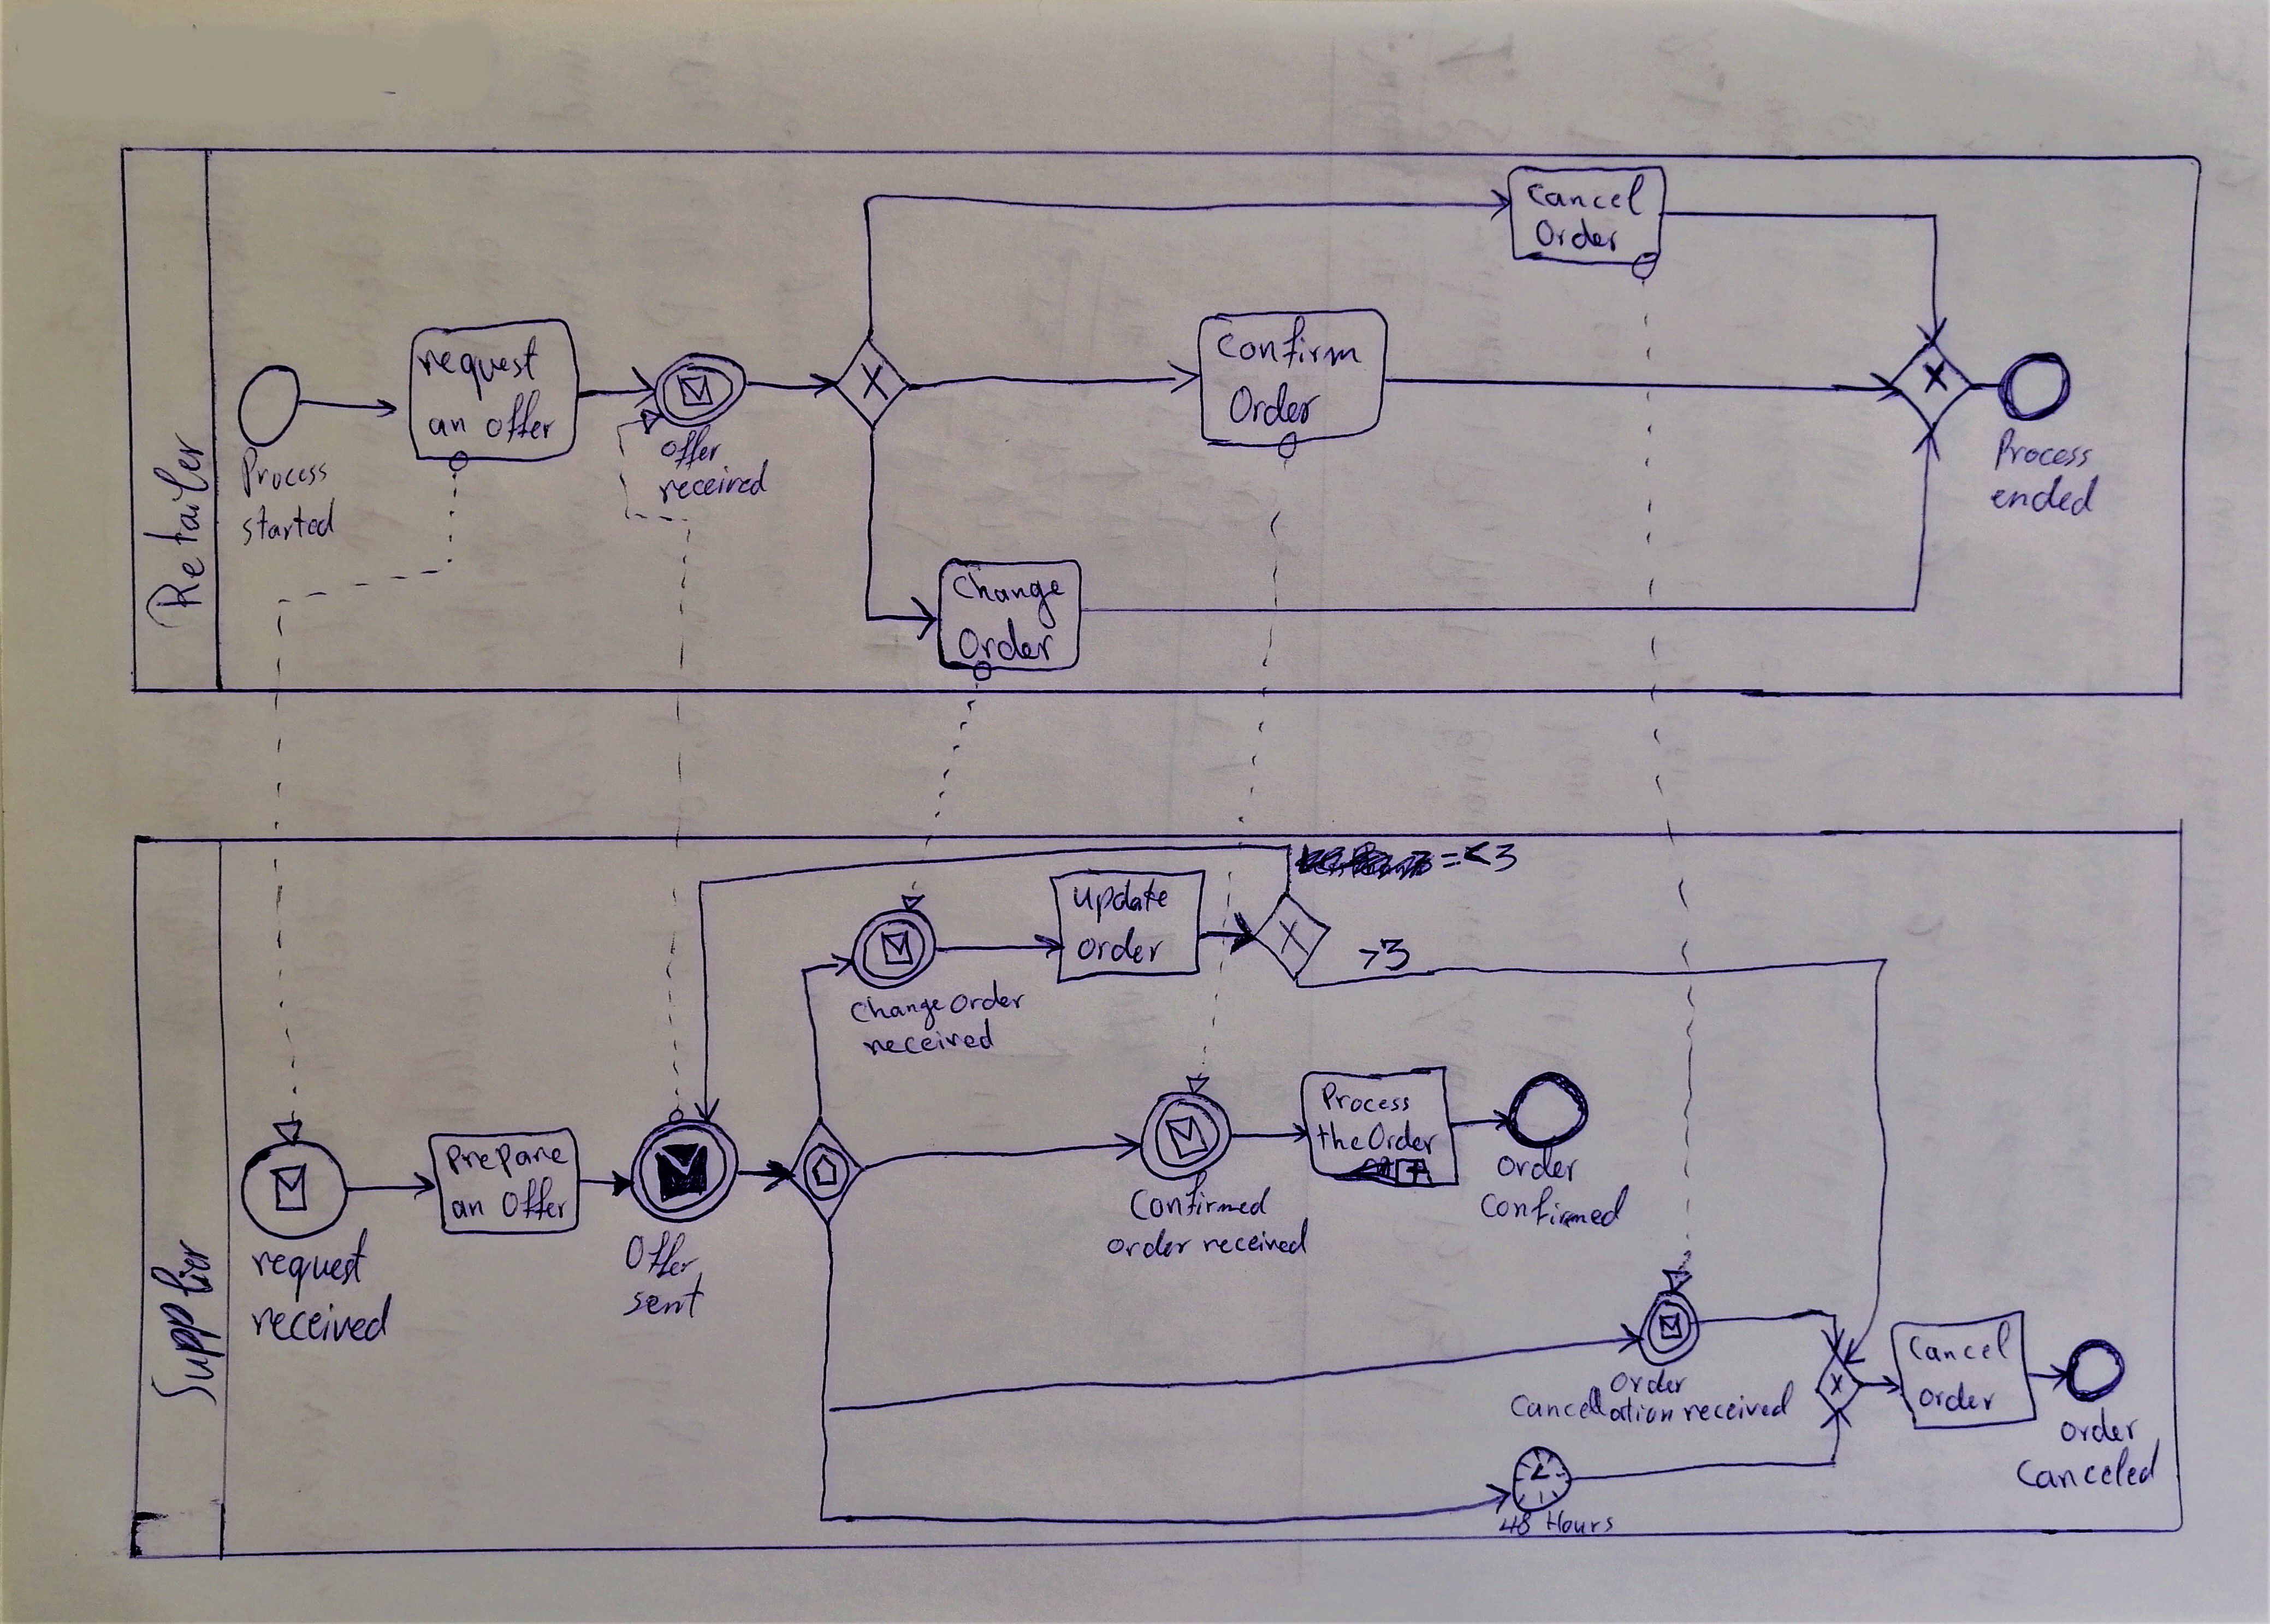 Retailer
Process
started
request
an offer
offer
received
Cancel
Order
Confirm
Order
Change
Order
Process
ended
Supplier
request
received
Prepare
an Offer
Offer
sent
Change Order
received
update
order
=<3
>3
Confirmed
order received
Process
the Order
order
Confirmed
order
Cancellation received
48 Hours
Cancel
order
order
Canceled